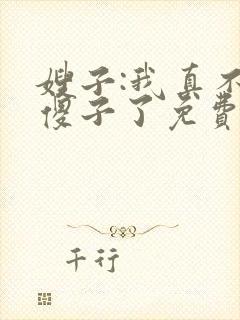 嫂子:我真不
傻子了免费
千行